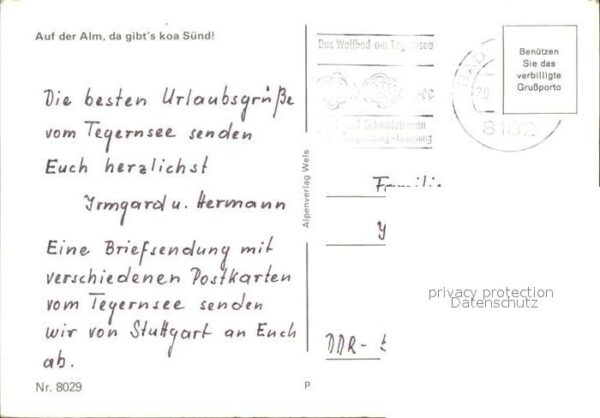 Auf der Alm, da gibt's koa Sünd!
Die besten Urlaubsgrüße
vom Tegernsee senden
Euch herzlichst
Irmgard u. Hermann
Eine Briefsendung mit
verschiedenen Postkarten
vom Tegernsee senden
wir von Stuttgart an Euch
ab.
Nr. 8029
Alpenverlag Wels
P
Das Weltbad am Tegernsee
8182
Benützen
Sie das
verbilligte
Grußporto
DDR-
privacy protection
Datenschutz